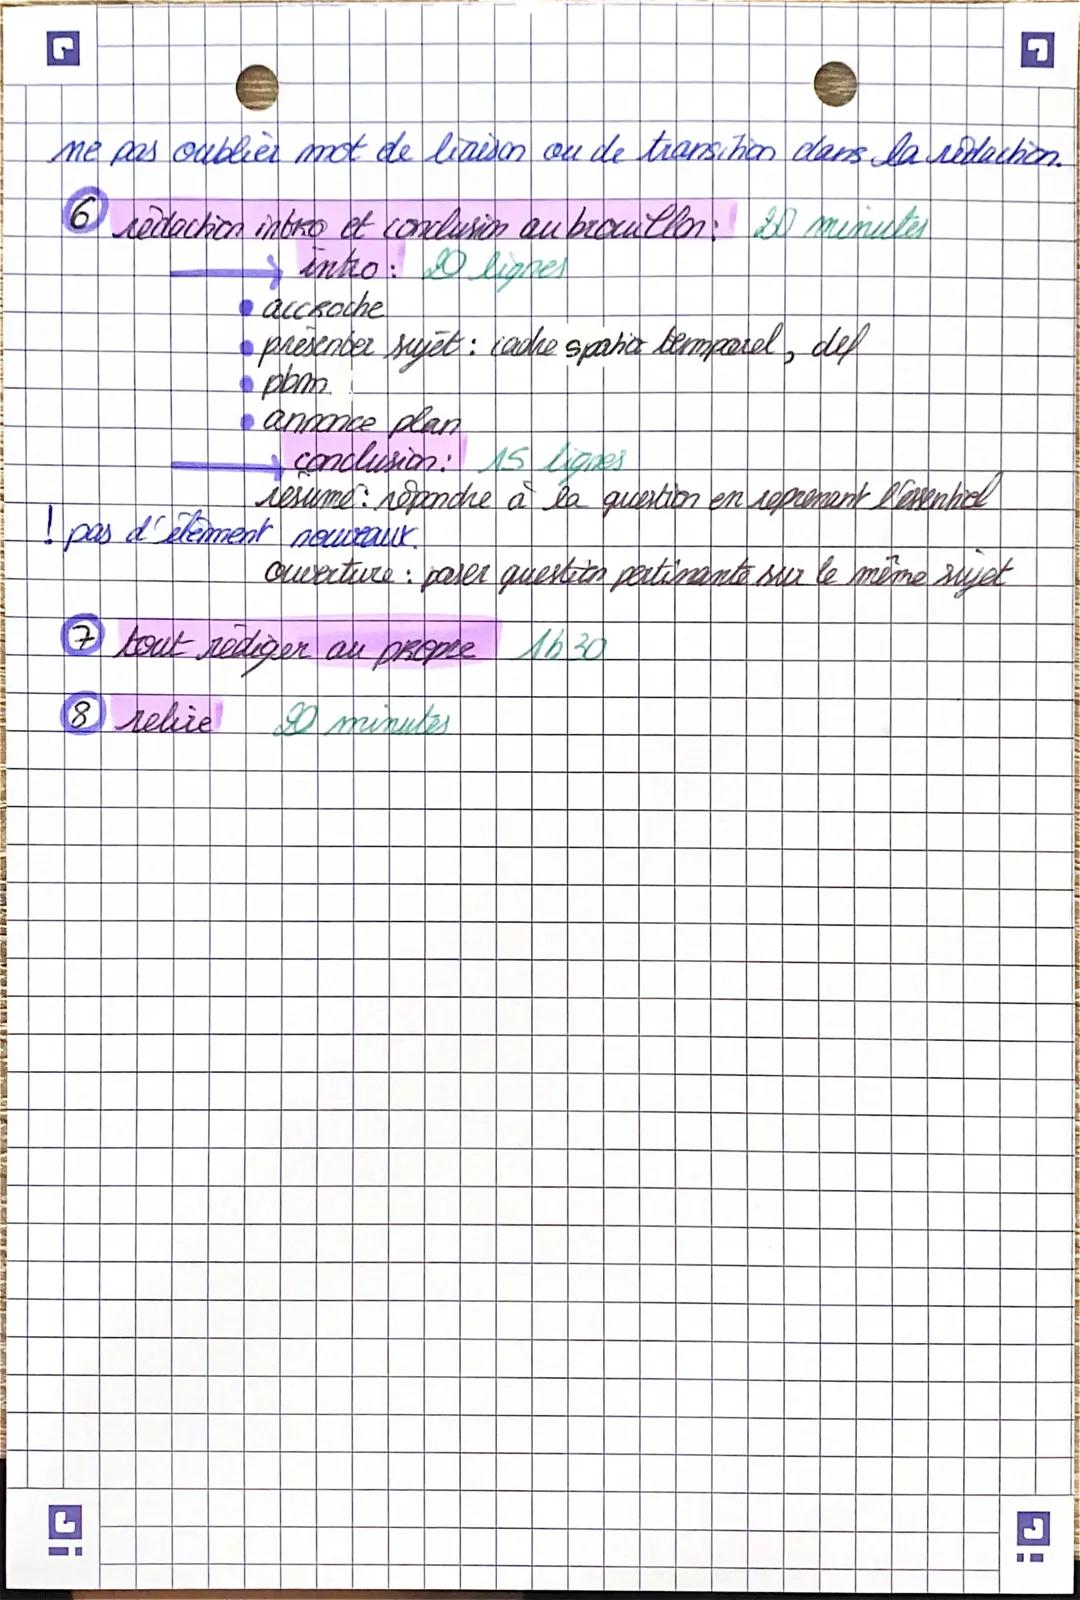 ne pas oublier mot de liaison ou de transition dans la rédaction.
6 rédaction intro et conclusion au brouillon: 20 minutes
intro: 20 lignes
• accroche
• présenter sujet: cadre spatio temporel, def
• pbm
• annonce plan
conclusion: 15 lignes
résumé: répondre à la question en reprenant l'essentiel
! pas d'élément nouveaux.
ouverture: poser question pertinante sur le même sujet
7 tout rédiger au propre 1h30
8 relire 20 minutes